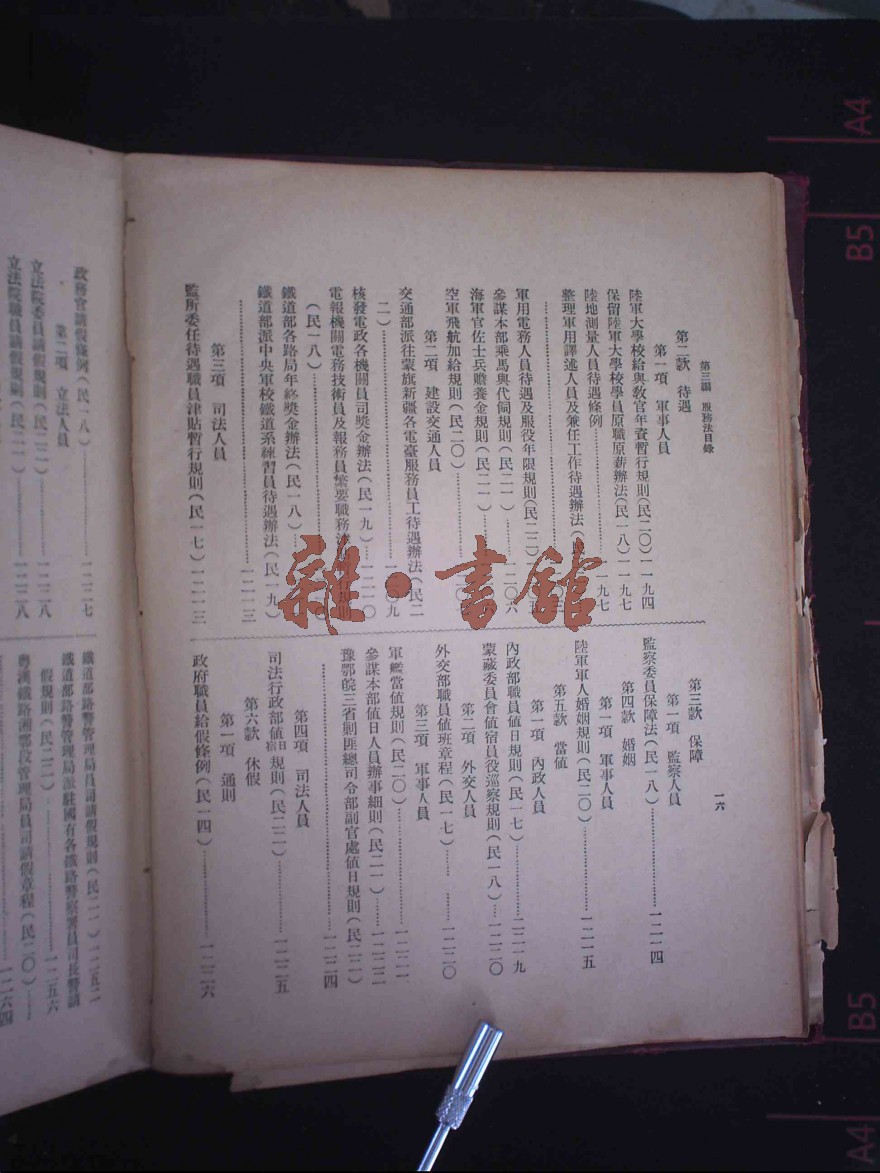 第三編 服務法目錄
一六
第二款 待遇
第一項 軍事人員
陸軍大學校給與教官年資暫行規則(民二〇)一一九四
保留陸軍大學校學員原職原薪辦法(民一八)一一九七
陸地測量人員待遇條例……一一九七
整理軍用譯述人員及兼任工作待遇辦法
軍用電務人員待遇及服役年限規則(民二二)
參謀本部乘馬與代飼規則(民二一)……一二〇六
海軍官佐士兵贍養金規則(民二一)
空軍飛航加給規則(民二〇)
第二項 建設交通人員
交通部派往蒙旗新疆各電臺服務員工待遇辦法(民二
二)
核發電政各機關員司獎金辦法(民一九)
電報機關電務技術員及報務員繁要職務
(民一八)
鐵道部各路局年終獎金辦法(民一八)
鐵道部派中央軍校鐵道系練習員待遇辦法(民一九)
……一二一三
第三項 司法人員
監所委任待遇職員津貼暫行規則(民一七)一二一三
第三款 保障
第一項 監察人員
監察委員保障法(民一八)……一二一四
第四款 婚姻
第一項 軍事人員
陸軍軍人婚姻規則(民二〇)……一二一五
第五款 當値
第一項 內政人員
內政部職員値日規則(民一七)……一二一九
蒙藏委員會値宿員役巡察規則(民一八)…一二二〇
第二項 外交人員
外交部職員値班章程(民一七)……一二二〇
第三項 軍事人員
軍艦當値規則(民二〇)……一二二一
參謀本部値日人員辦事細則(民二一)……一二二二
豫鄂皖三省剿匪總司令部副官處値日規則(民二一)
……一二二四
第四項 司法人員
司法行政部値日宿規則(民二二)……一二二五
第六款 休假
第一項 通則
政府職員給假條例(民一四)……一二二六
政務官請假條例(民一八)……一二二七
第二項 立法人員
立法院委員請假規則(民二二)……一二二八
立法院職員請假規則(民二一)……一二二八
鐵道部路警管理局員司請假規則(民二一)一二五二
鐵道部路警管理局派駐國有各鐵路警察署員司長警請
假規則(民二二)……一二五六
粵漢鐵路湘鄂段管理局員司請假章程(民二〇)……
一二六四
雜·書館
A4
B5
B5
A4